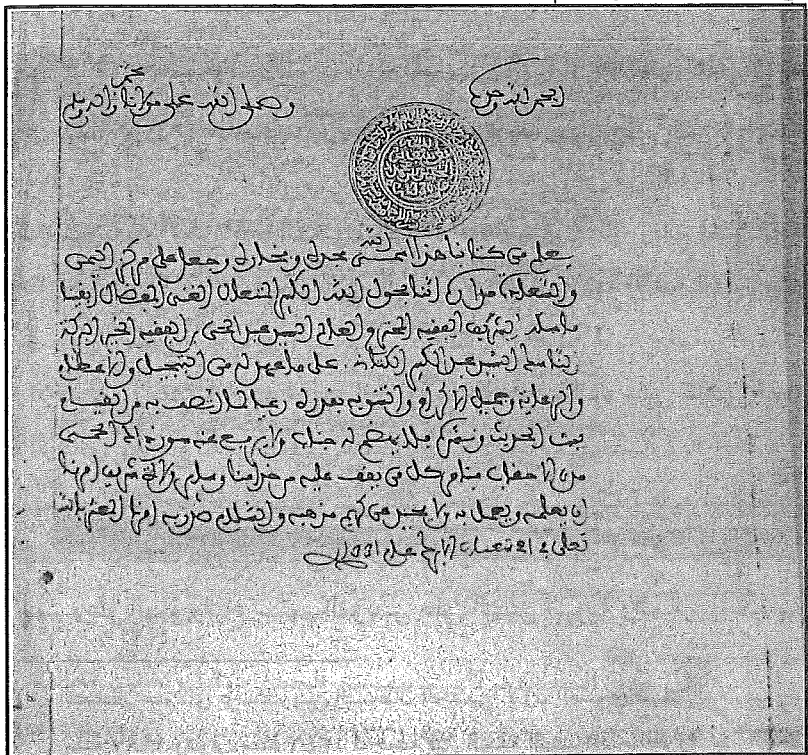 الحمد لله وحده
وصلى الله على مولانا محمد وآله وسلم
يعلم من كتابنا هذا اسمى الله مجده وفخاره وجعل على مركز اليمن
والسعادة مداره اننا بحول الله الكريم المتعال الغني المفضال أبقينا
ماسكه الشريف الفقيه المحترم والعالم السيد عبد الحي بن الفقيه الخير البركة
السيد عبد الكبير الكتاني على ما عهد له من التبجيل والاعظام
والرعاية وجميل الاكرام والتنويه بقدره رعيا لما اتصف به من القيام
ببث الحديث ونشره فلا يهضم له جناب ولا يرفع عنه صون ذلك
من الاحقاب فنامر كل من يقف عليه من خدامنا وولاة شريف امرنا
ان يعلمه ويعمل به ولا يحيد عن كريم مذهبه والسلام صدر به امرنا المعتز بالله
تعالى في شعبان الابرك عام 1331